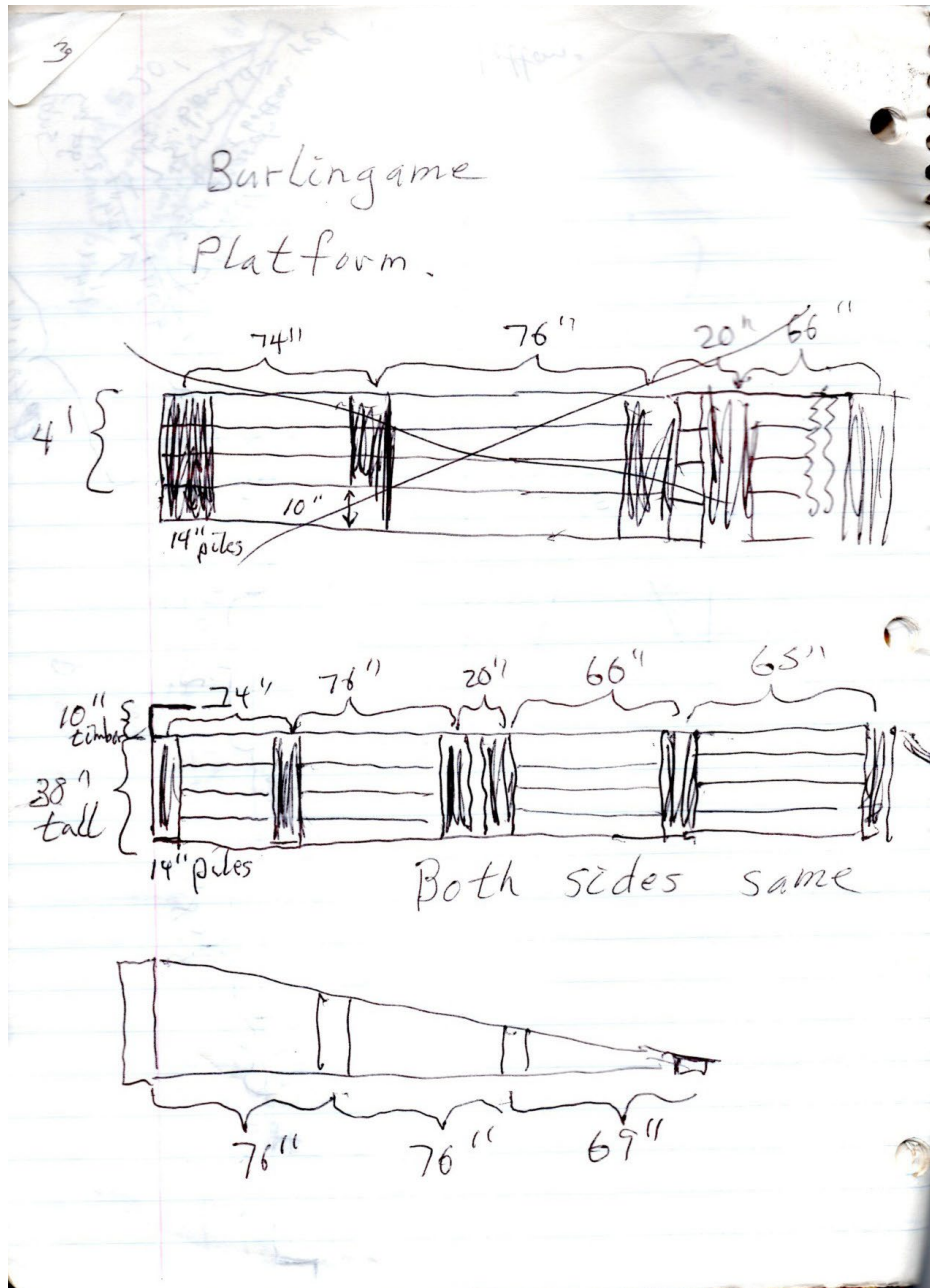 30
Burlingame
Platform.
74" 76" 20" 66"
4'
10"
14" piles
74" 76" 20" 66" 65"
10"
timber
38"
tall
14" piles
Both sides same
76" 76" 69"